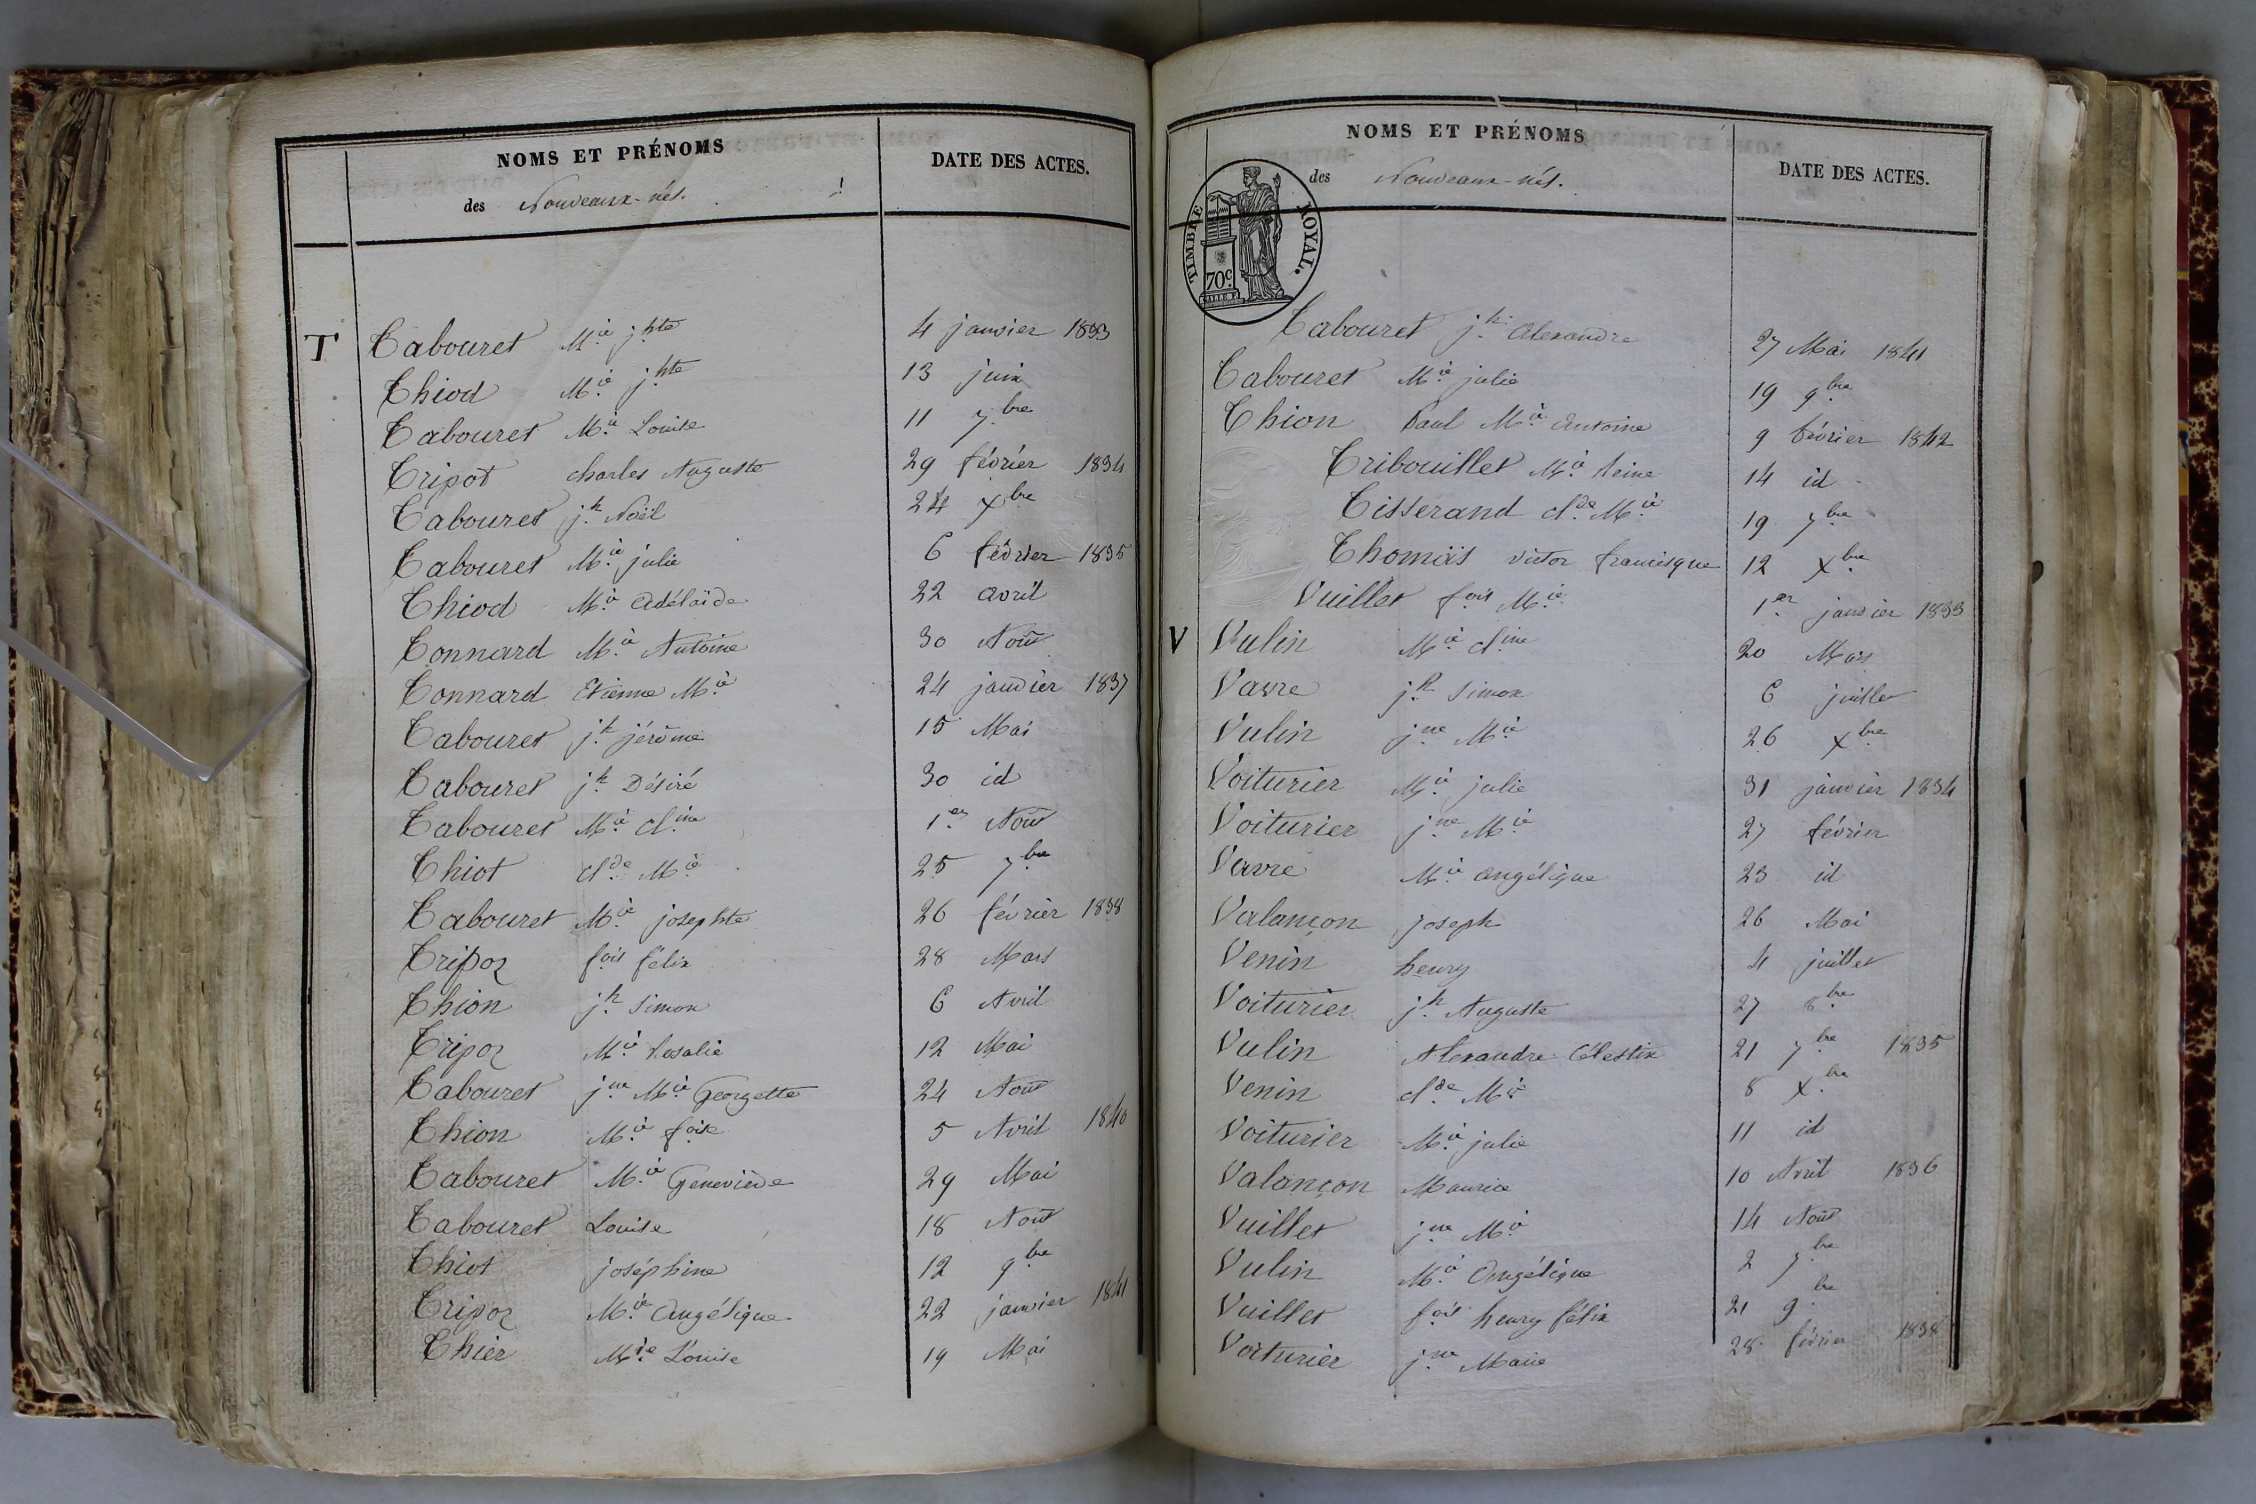 NOMS ET PRÉNOMS DATE DES ACTES.
des Nouveaux-nés.
T Tabouret M.ie j.hte 4 janvier 1833
Thiod M.ie j.hte 13 juin
Tabouret M.ie Louise 11 7.bre
Tripot charles Auguste 29 février 1834
Tabouret j.h Noël 24 Xbre
Tabouret M.ie julie 6 février 1835
Thiod M.ie Adélaïde 22 avril
Tonnard M.ie Antoine 30 Août
Tonnard Etienne M.ie 24 janvier 1837
Tabouret j.h jérôme 15 Mai
Tabouret j.h Désiré 30 id
Tabouret M.ie Cl.ine 1.er Août
Thiot Cl.de M.ie 25 7.bre
Tabouret M.ie josephte 26 février 1838
Tripoz f.ois félix 28 Mars
Thion j.h Simon 6 Avril
Tripoz M.ie Rosalie 12 Mai
Tabouret j.ne M.ie Georgette 24 Août
Thion M.ie f.oise 5 Avril 1840
Tabouret M.ie Geneviève 29 Mai
Tabouret Louise 18 Août
Thiot joséphine 12 9bre
Tripoz M.ie Angélique 22 janvier 1841
Thier M.ie Louise 19 Mai
NOMS ET PRÉNOMS DATE DES ACTES.
des Nouveaux-nés.
TIMBRE ROYAL.
70c.
Tabouret j.h Alexandre 27 Mai 1841
Tabouret M.ie julie 19 9bre
Thion Paul M.ie Antoine 9 février 1842
Tribouillet M.ie Reine 14 id
Tisserand Cl.de M.ie 19 7bre
Thomas victor francisque 12 Xbre
Vuillet f.ois M.ie 1.er janvier 1833
V Vulin M.ie Cl.ine 20 Mars
Vavre j.h Simon 6 juillet
Vulin j.ne M.ie 26 Xbre
Voiturier M.ie julie 31 janvier 1834
Voiturier j.ne M.ie 27 février
Vavre M.ie angélique 23 id
Valançon joseph 26 Mai
Venin henry 4 juillet
Voiturier j.h Auguste 27 8bre
Vulin Alexandre Célestin 21 7bre 1835
Venin Cl.de M.ie 8 X.bre
Voiturier M.ie julie 11 id
Valançon Maurice 10 Avril 1836
Vuillet j.ne M.ie 14 Août
Vulin M.ie Angélique 2 7bre
Vuillet f.ois henry félix 21 9.bre
Voiturier j.ne Marie 28 février 1838